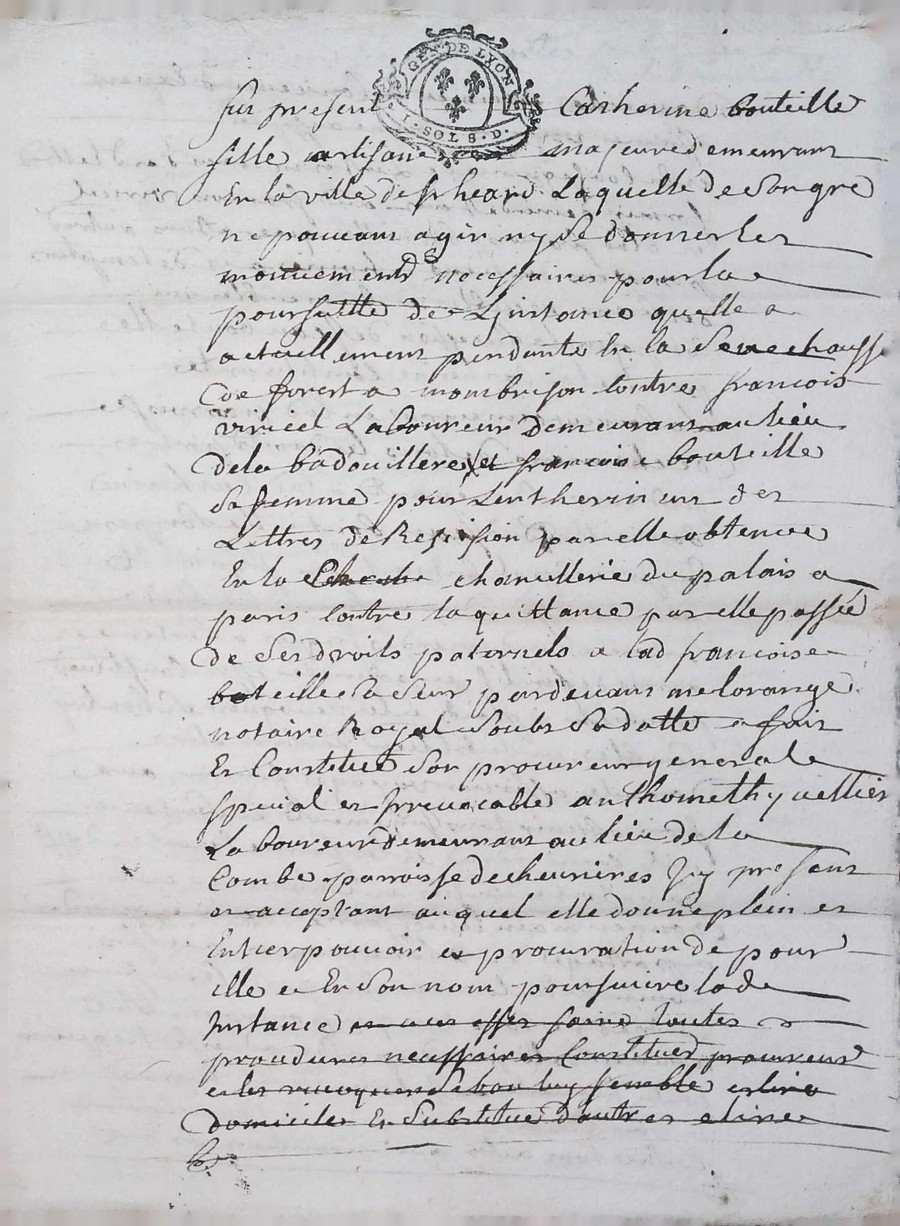 GEN DE LYON
I · SOL 8 · D ·
fut present Catherine bouteille
fille artisane majeure demeurant
En la ville de st heand Laquelle de Son gre
ne pouvant agir ny Se donner les
mouvements necessaires pour la
poursuitte de Linstance quelle a
actuellement pendante En la Senechauss
de forest a montbrison Contre francois
viricel Laboureur Demeurant au lieu
de la badouillere et francoise bouteille
Sa femme pour Lentherinement des
Lettres de Rescision par elle obtenues
En la chancellerie du palais a
paris Contre la quittance par elle passée
de Ses droits paternels a lad francoise
bouteille Sa Seur pardevant me lorange
notaire Royal Soubs Sa datte a fait
Et Constitué Son procureur general
special et Irrevocable anthome thyvellier
Laboureur demeurant au lieu de la
Combe parroisse de chevrieres Icy present
et acceptant auquel elle donne plein et
Entier pouvoir et procuration de pour
elle et En Son nom poursuivre lade
Instance et a ces effes faire toutes
procedures necessaires Constituer procureur
et les revoquer Si bon luy semble eslire
domicile En Substitue d'autres elire